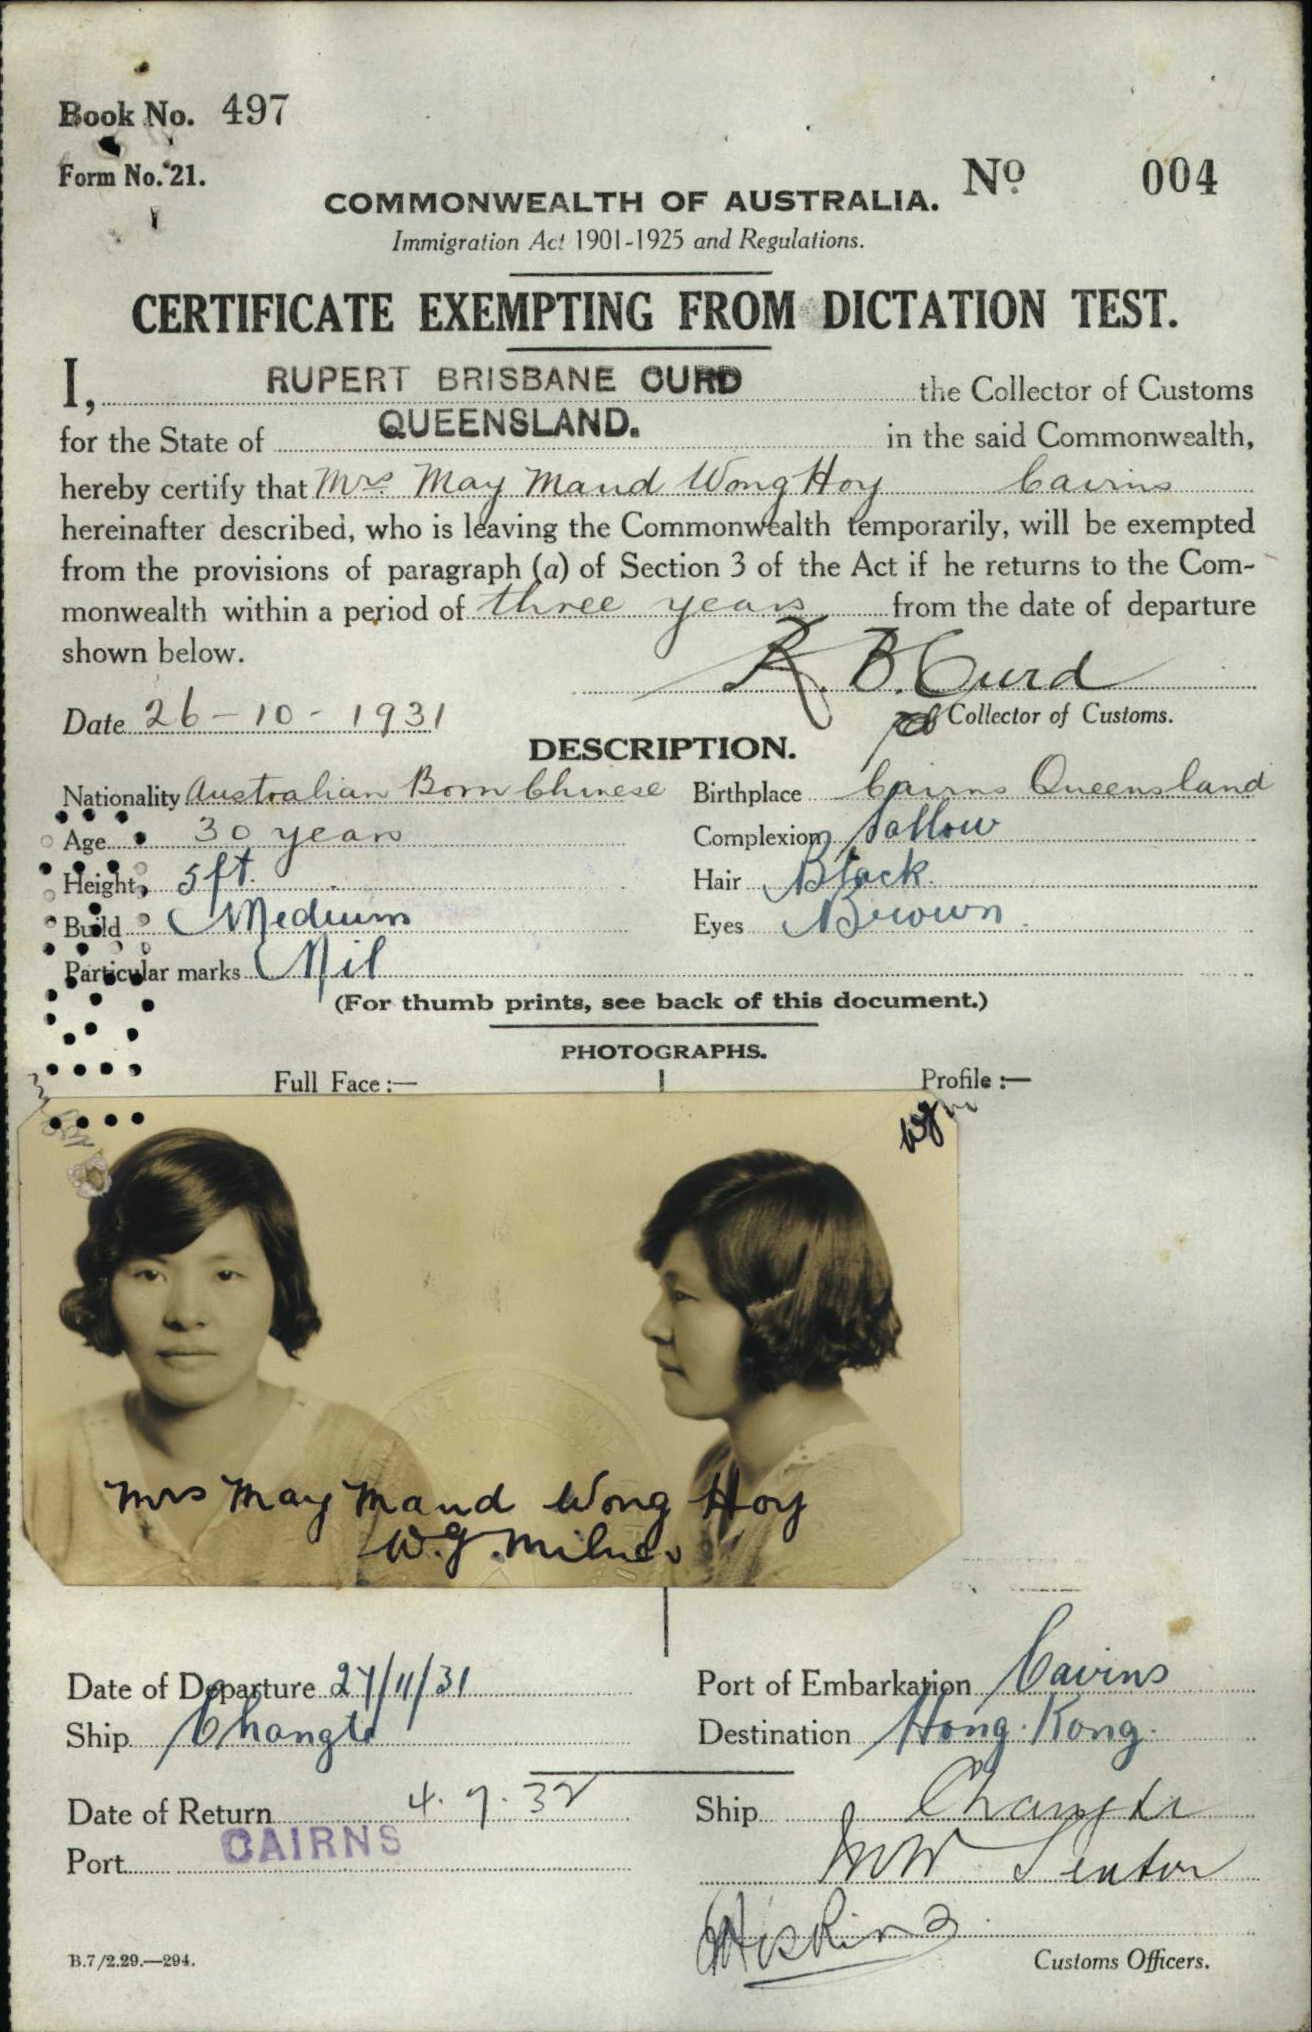 Book No. 497
Form No. 21.
No 004
COMMONWEALTH OF AUSTRALIA.
Immigration Act 1901-1925 and Regulations.
CERTIFICATE EXEMPTING FROM DICTATION TEST.
I, RUPERT BRISBANE CURD the Collector of Customs
for the State of QUEENSLAND. in the said Commonwealth,
hereby certify that Mrs. May Maud Wong Hoy Cairns
hereinafter described, who is leaving the Commonwealth temporarily, will be exempted
from the provisions of paragraph (a) of Section 3 of the Act if he returns to the Com-
monwealth within a period of three years from the date of departure
shown below.
R. B. Curd
Date 26-10-1931 Collector of Customs.
DESCRIPTION.
Nationality Australian Born Chinese Birthplace Cairns Queensland
Age 30 years Complexion Sallow
Height, 5 ft. Hair Black.
Build Medium Eyes Brown.
Particular marks Nil
(For thumb prints, see back of this document.)
PHOTOGRAPHS.
Full Face :— Profile :—
Mrs May Maud Wong Hoy
W. G. Milne
Date of Departure 27/11/31 Port of Embarkation Cairns
Ship Changte Destination Hong. Kong.
Date of Return 4. 7. 32 Ship Changte
Port CAIRNS
B.7/2.29.—294. Customs Officers.